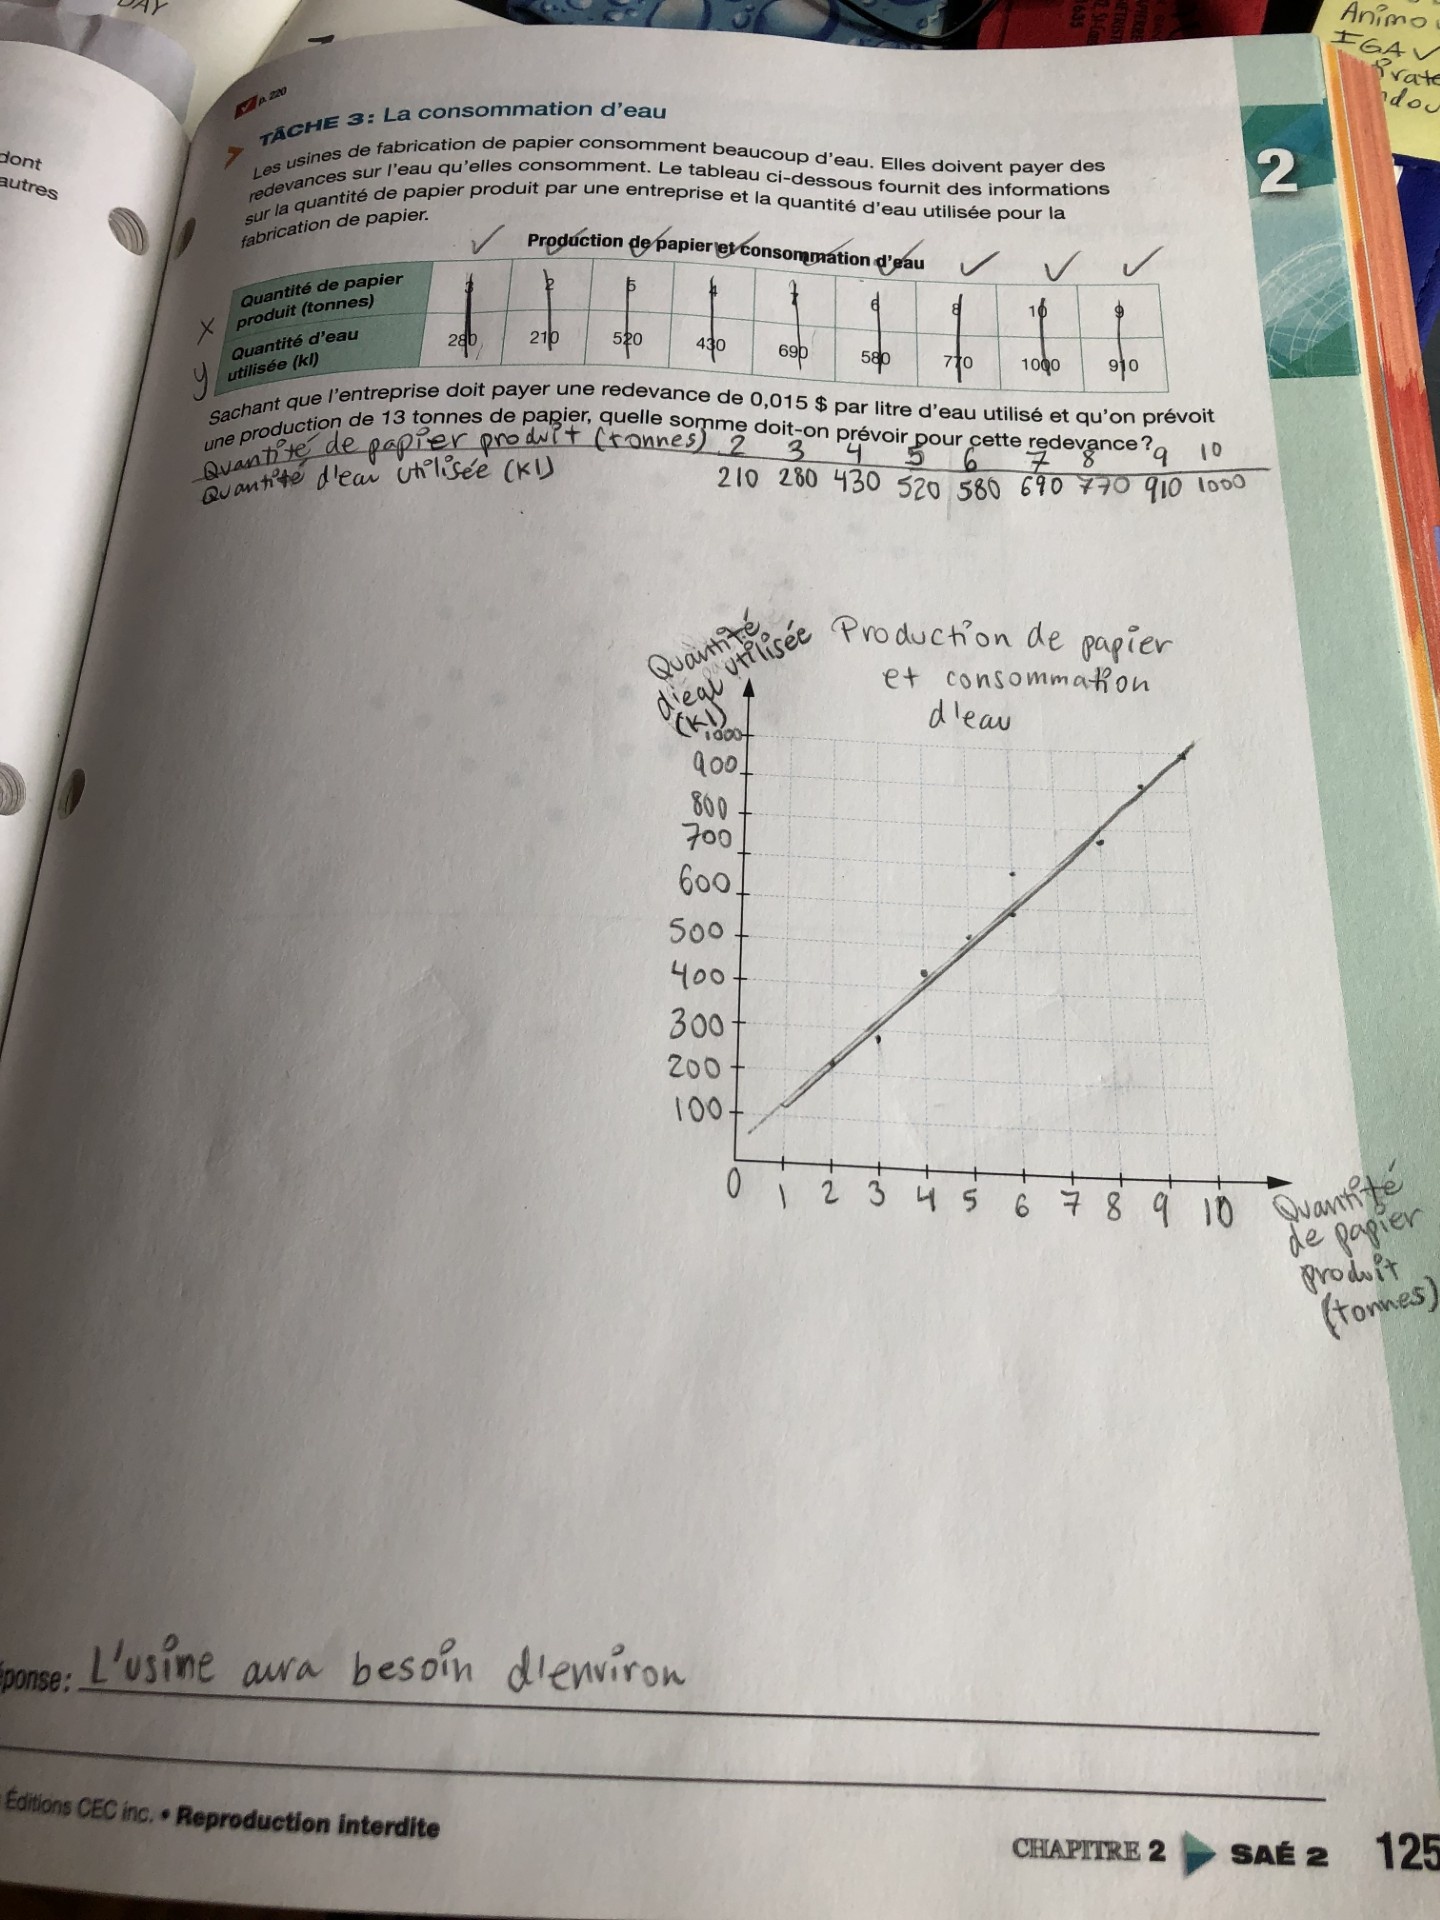 DAY
Animo
IGAV
irate
ndou
1635
dont
autres
p. 220
TÂCHE 3: La consommation d'eau
2
Les usines de fabrication de papier consomment beaucoup d'eau. Elles doivent payer des
redevances sur l'eau qu'elles consomment. Le tableau ci-dessous fournit des informations
sur la quantité de papier produit par une entreprise et la quantité d'eau utilisée pour la
fabrication de papier.
Production de papier et consommation d'eau
x Quantité de papier produit (tonnes) 3 2 5 4 7 6 8 10 9
y Quantité d'eau utilisée (kl) 280 210 520 430 690 580 770 1000 910
Sachant que l'entreprise doit payer une redevance de 0,015 $ par litre d'eau utilisé et qu'on prévoit
une production de 13 tonnes de papier, quelle somme doit-on prévoir pour cette redevance?
Quantité de papier produit (tonnes) 2 3 4 5 6 7 8 9 10
Quantité d'eau utilisée (kl) 210 280 430 520 580 690 770 910 1000
Quantité
d'eau utilisée
(kl)
Production de papier
et consommation
d'eau
1000
900
800
700
600
500
400
300
200
100
0 1 2 3 4 5 6 7 8 9 10
Quantité
de papier
produit
(tonnes)
ponse: L'usine aura besoin d'environ
Éditions CEC inc. • Reproduction interdite
CHAPITRE 2 SAÉ 2 125